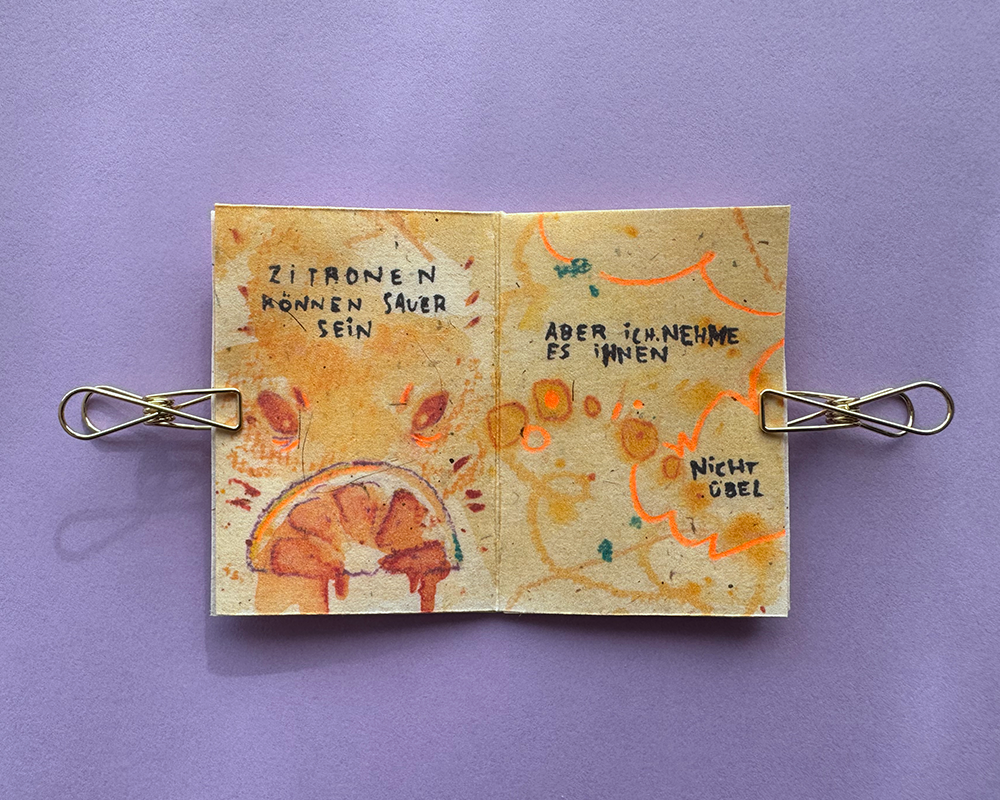 ZiTRONEN
KÖNNEN SAUER
SEiN
ABER iCH.NEHME
ES iHNEN
NiCHT
ÜBEL